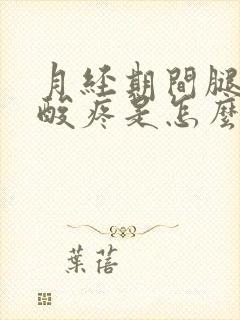 月経期間腿
酸疼是怎麼
葉蓓